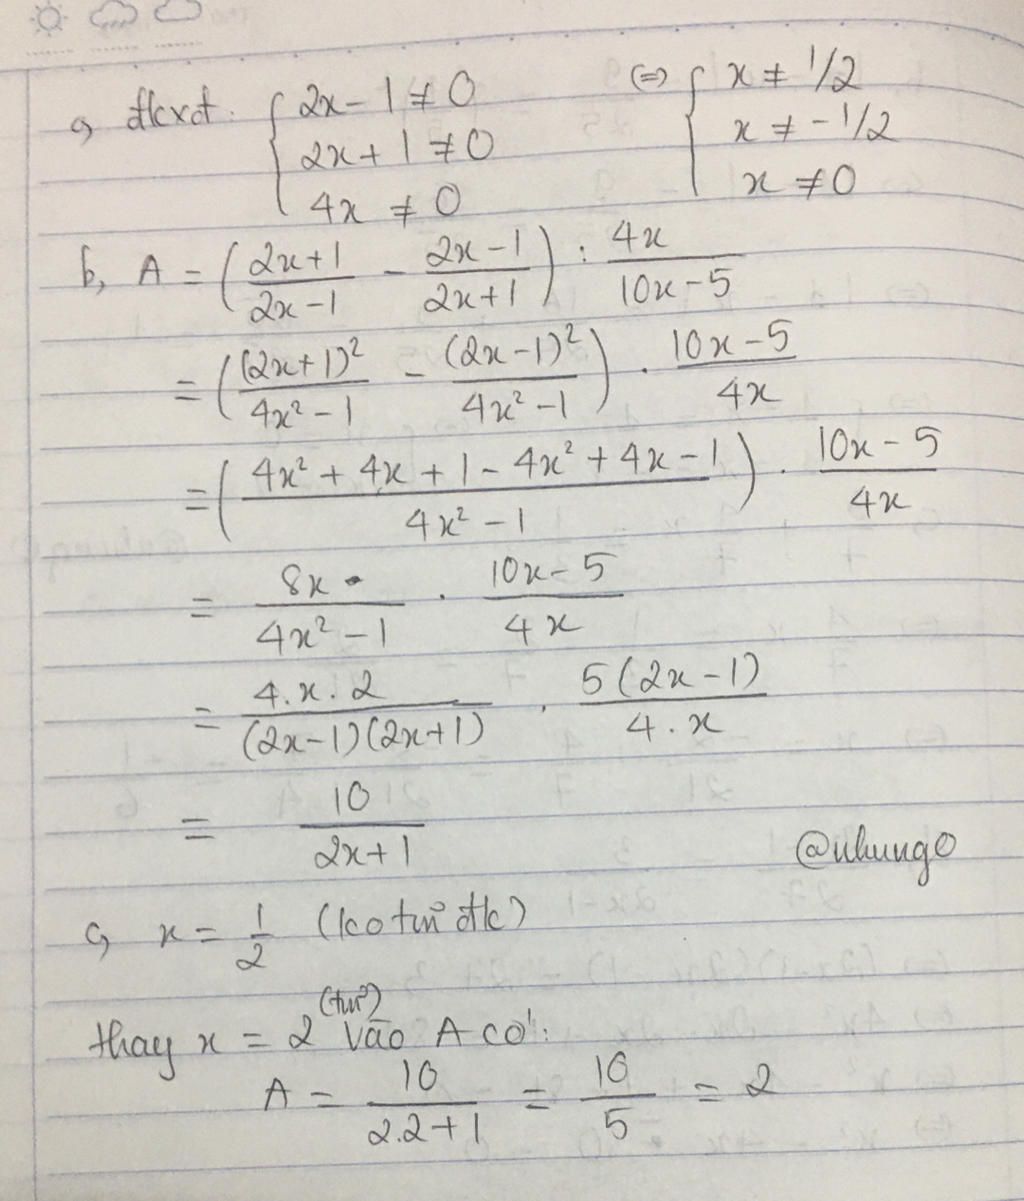 a, đkxđ: { 2x - 1 ≠ 0 ⇔ { x ≠ 1/2
2x + 1 ≠ 0 x ≠ - 1/2
4x ≠ 0 x ≠ 0
b, A = ( (2x+1)/(2x-1) - (2x-1)/(2x+1) ) : 4x/(10x-5)
= ( (2x+1)²/(4x²-1) - (2x-1)²/(4x²-1) ) . (10x-5)/4x
= ( (4x² + 4x + 1 - 4x² + 4x - 1)/(4x² - 1) ) . (10x - 5)/4x
= 8x/(4x² - 1) . (10x - 5)/4x
= 4.x.2/((2x-1)(2x+1)) . 5(2x-1)/4.x
= 10/(2x+1)
@nhung
c, x = 1/2 (ko tm đk)
(tm)
thay x = 2 vào A có:
A = 10/(2.2+1) = 10/5 = 2